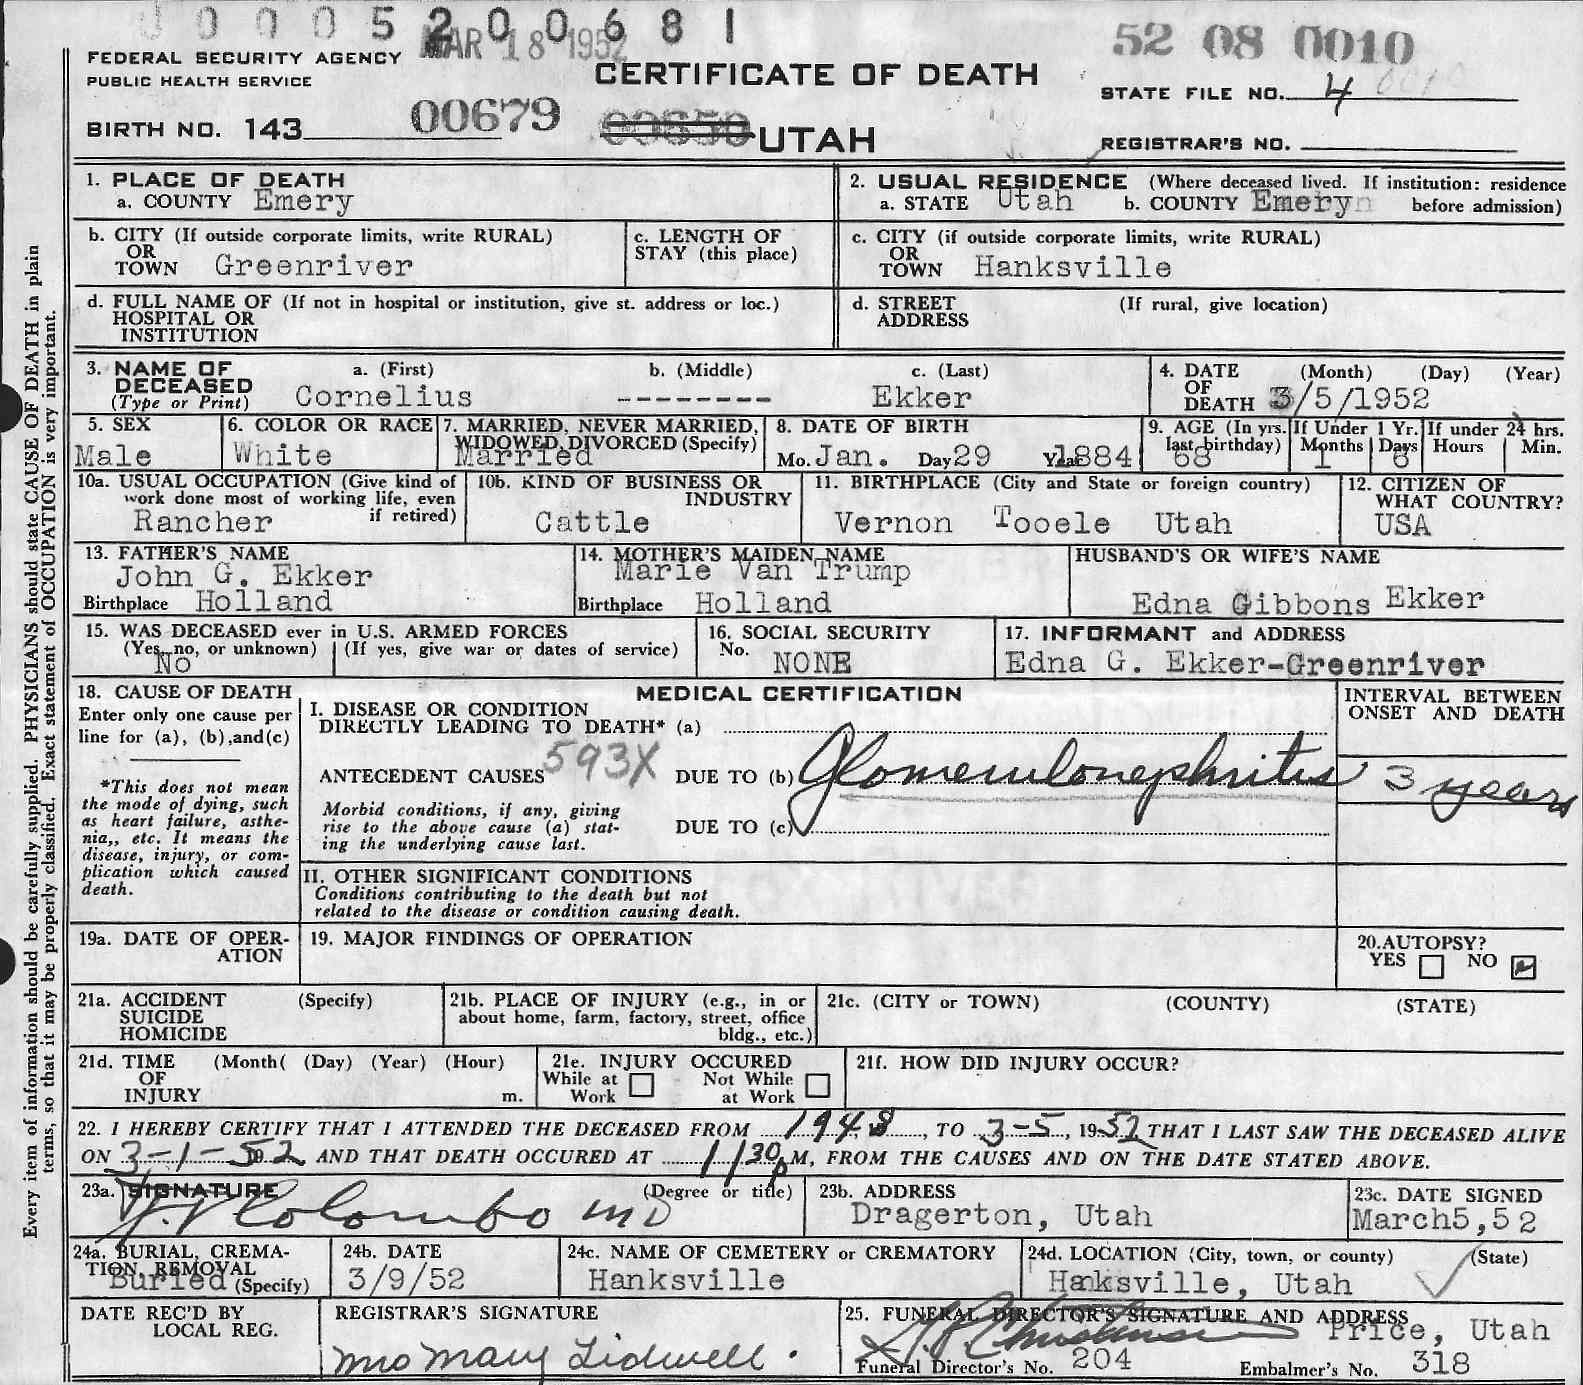 0 0 0 5 2 0 0 6 8 1
MAR 18 1952
52 08 0010
FEDERAL SECURITY AGENCY
PUBLIC HEALTH SERVICE
CERTIFICATE OF DEATH
STATE FILE NO. 4
BIRTH NO. 143 00679
UTAH
REGISTRAR'S NO.
1. PLACE OF DEATH
a. COUNTY Emery
2. USUAL RESIDENCE (Where deceased lived. If institution: residence
a. STATE Utah b. COUNTY Emery before admission)
b. CITY (If outside corporate limits, write RURAL)
OR
TOWN Greenriver
c. LENGTH OF
STAY (this place)
c. CITY (if outside corporate limits, write RURAL)
OR
TOWN Hanksville
d. FULL NAME OF (If not in hospital or institution, give st. address or loc.)
HOSPITAL OR
INSTITUTION
d. STREET (If rural, give location)
ADDRESS
3. NAME OF
DECEASED
(Type or Print)
a. (First) b. (Middle) c. (Last)
Cornelius -------- Ekker
4. DATE (Month) (Day) (Year)
OF
DEATH 3/5/1952
5. SEX
Male
6. COLOR OR RACE
White
7. MARRIED, NEVER MARRIED,
WIDOWED, DIVORCED (Specify)
Married
8. DATE OF BIRTH
Mo. Jan. Day 29 Year 1884
9. AGE (In yrs.
last birthday)
68
If Under 1 Yr.
Months Days
1 6
If under 24 hrs.
Hours Min.
10a. USUAL OCCUPATION (Give kind of
work done most of working life, even
if retired)
Rancher
10b. KIND OF BUSINESS OR
INDUSTRY
Cattle
11. BIRTHPLACE (City and State or foreign country)
Vernon Tooele Utah
12. CITIZEN OF
WHAT COUNTRY?
USA
13. FATHER'S NAME
John G. Ekker
Birthplace Holland
14. MOTHER'S MAIDEN NAME
Marie Van Trump
Birthplace Holland
HUSBAND'S OR WIFE'S NAME
Edna Gibbons Ekker
15. WAS DECEASED ever in U.S. ARMED FORCES
(Yes, no, or unknown) (If yes, give war or dates of service)
No
16. SOCIAL SECURITY
No.
NONE
17. INFORMANT and ADDRESS
Edna G. Ekker-Greenriver
18. CAUSE OF DEATH
Enter only one cause per
line for (a), (b),and(c)
*This does not mean
the mode of dying, such
as heart failure, asthe-
nia,, etc. It means the
disease, injury, or com-
plication which caused
death.
MEDICAL CERTIFICATION
I. DISEASE OR CONDITION
DIRECTLY LEADING TO DEATH* (a)
593X
ANTECEDENT CAUSES DUE TO (b) Glomerulonephritis
Morbid conditions, if any, giving
rise to the above cause (a) stat-
ing the underlying cause last.
DUE TO (c)
INTERVAL BETWEEN
ONSET AND DEATH
3 years
II. OTHER SIGNIFICANT CONDITIONS
Conditions contributing to the death but not
related to the disease or condition causing death.
19a. DATE OF OPER-
ATION
19. MAJOR FINDINGS OF OPERATION
20.AUTOPSY?
YES NO
21a. ACCIDENT (Specify)
SUICIDE
HOMICIDE
21b. PLACE OF INJURY (e.g., in or
about home, farm, factory, street, office
bldg., etc.)
21c. (CITY or TOWN) (COUNTY) (STATE)
21d. TIME (Month( (Day) (Year) (Hour)
OF
INJURY m.
21e. INJURY OCCURED
While at Not While
Work at Work
21f. HOW DID INJURY OCCUR?
22. I HEREBY CERTIFY THAT I ATTENDED THE DECEASED FROM 1948, TO 3-5, 1952 THAT I LAST SAW THE DECEASED ALIVE
ON 3-1-52 AND THAT DEATH OCCURED AT 1 30 p M, FROM THE CAUSES AND ON THE DATE STATED ABOVE.
23a. SIGNATURE (Degree or title)
Colombo MD
23b. ADDRESS
Dragerton, Utah
23c. DATE SIGNED
March5,52
24a. BURIAL, CREMA-
TION, REMOVAL
Buried (Specify)
24b. DATE
3/9/52
24c. NAME OF CEMETERY or CREMATORY
Hanksville
24d. LOCATION (City, town, or county) (State)
Hanksville, Utah
DATE REC'D BY
LOCAL REG.
REGISTRAR'S SIGNATURE
Mrs Mary Lidwell.
25. FUNERAL DIRECTOR'S SIGNATURE AND ADDRESS
Price, Utah
Funeral Director's No. 204 Embalmer's No. 318
Every item of information should be carefully supplied. PHYSICIANS should state CAUSE OF DEATH in plain
terms, so that it may be properly classified. Exact statement of OCCUPATION is very important.